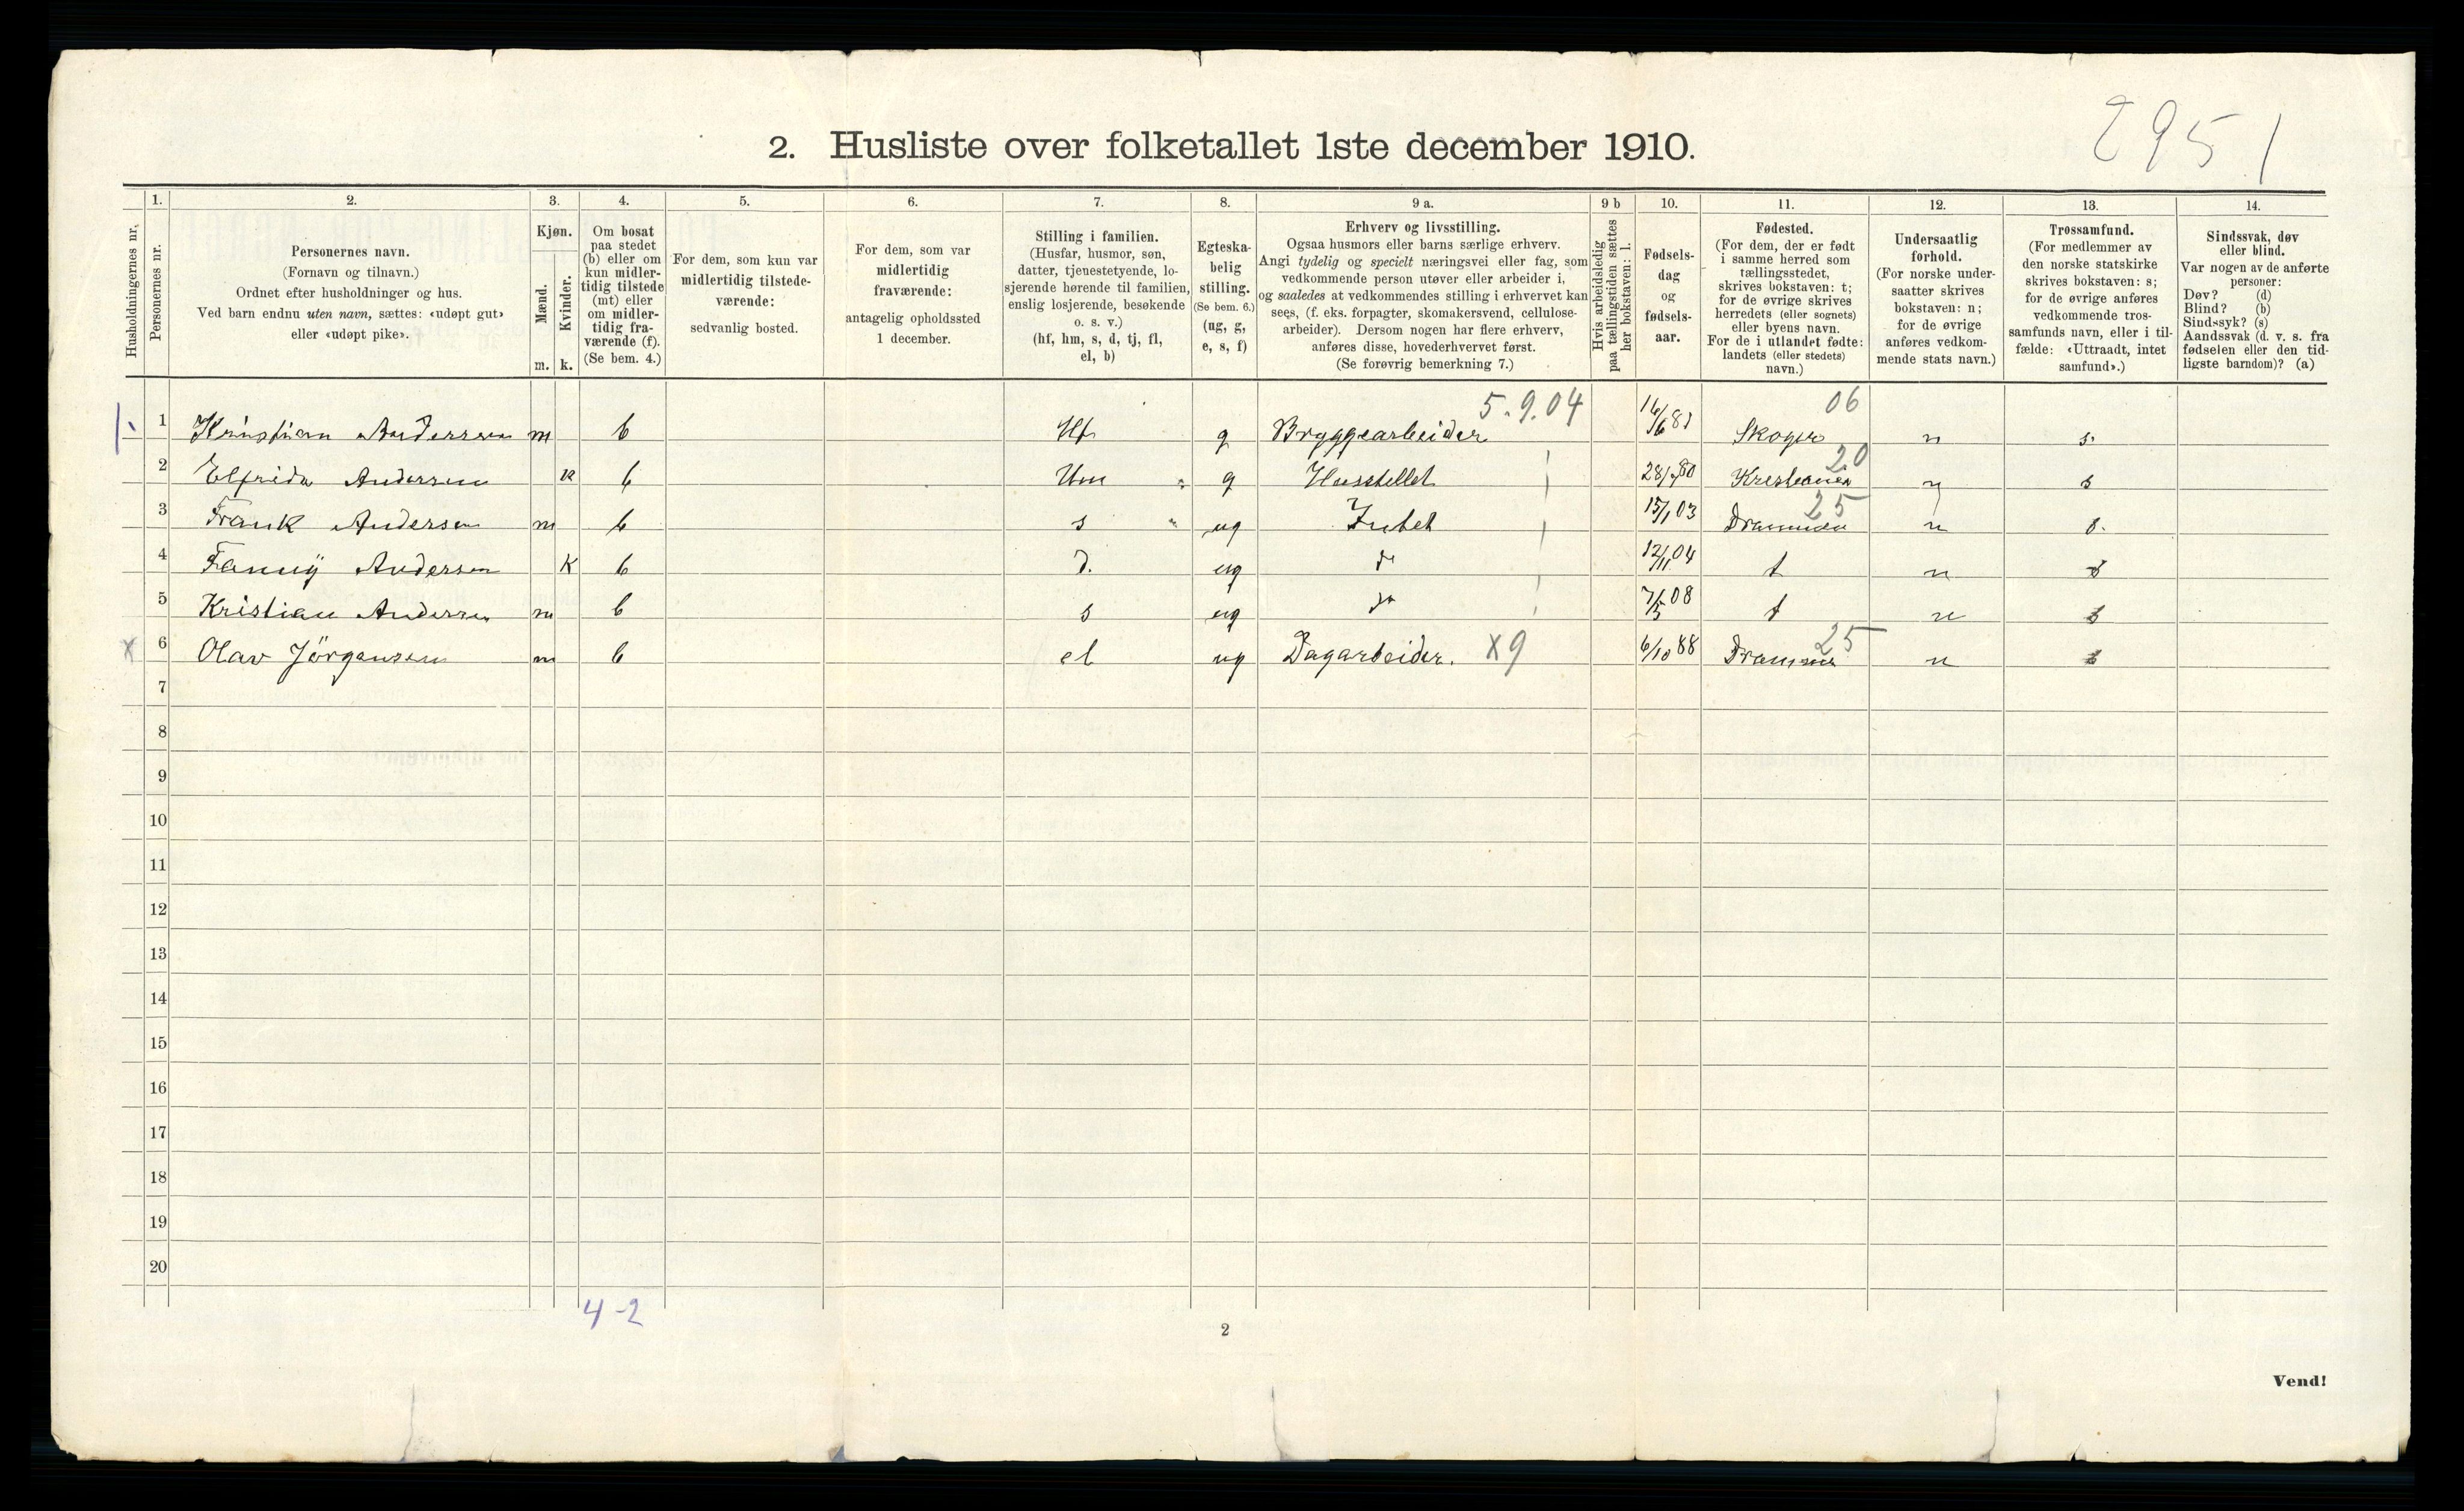 2951
2. Husliste over folketallet 1ste december 1910.
Husholdningernes nr.
1.
Personernes nr.
2.
Personernes navn.
(Fornavn og tilnavn.)
Ordnet efter husholdninger og hus.
Ved barn endnu uten navn, sættes: «udøpt gut»
eller «udøpt pike».
3.
Kjøn.
Mænd.
Kvinder.
m. k.
4.
Om bosat
paa stedet
(b) eller om
kun midler-
tidig tilstede
(mt) eller
om midler-
tidig fra-
værende (f).
(Se bem. 4.)
5.
For dem, som kun var
midlertidig tilstede-
værende:
sedvanlig bosted.
6.
For dem, som var
midlertidig
fraværende:
antagelig opholdssted
1 december.
7.
Stilling i familien.
(Husfar, husmor, søn,
datter, tjenestetyende, lo-
sjerende hørende til familien,
enslig losjerende, besøkende
o. s. v.)
(hf, hm, s, d, tj, fl,
el, b)
8.
Egteska-
belig
stilling.
(Se bem. 6.)
(ug, g,
e, s, f)
9 a.
Erhverv og livsstilling.
Ogsaa husmors eller barns særlige erhverv.
Angi tydelig og specielt næringsvei eller fag, som
vedkommende person utøver eller arbeider i,
og saaledes at vedkommendes stilling i erhvervet kan
sees, (f. eks. forpagter, skomakersvend, cellulose-
arbeider). Dersom nogen har flere erhverv,
anføres disse, hovederhvervet først.
(Se forøvrig bemerkning 7.)
9 b
Hvis arbeidsledig
paa tællingstiden sættes
her bokstaven: l.
10.
Fødsels-
dag
og
fødsels-
aar.
11.
Fødested.
(For dem, der er født
i samme herred som
tællingsstedet,
skrives bokstaven: t;
for de øvrige skrives
herredets (eller sognets)
eller byens navn.
For de i utlandet fødte:
landets (eller stedets)
navn.)
12.
Undersaatlig
forhold.
(For norske under-
saatter skrives
bokstaven: n;
for de øvrige
anføres vedkom-
mende stats navn.)
13.
Trossamfund.
(For medlemmer av
den norske statskirke
skrives bokstaven: s;
for de øvrige anføres
vedkommende tros-
samfunds navn, eller i til-
fælde: «Uttraadt, intet
samfund».)
14.
Sindssvak, døv
eller blind.
Var nogen av de anførte
personer:
Døv? (d)
Blind? (b)
Sindssyk? (s)
Aandssvak (d. v. s. fra
fødselen eller den tid-
ligste barndom)? (a)
5.9.04 06
1 Kristian Andersen m b Hf g Bryggearbeider 16/6 81 Skoger n s.
20
2 Elfrida Andersen k b Hm g Husstellet Kristiania n s
25
3 Frank Andersen m b s ug Intet 15/1 03 Drammen n s.
4 Fanny Andersen K b d. ug do 12/11 04 t n s
5 Kristian Andersen m b s ug do 7/5 08 t n s
25
X 6 Olav Jörgensen m b el ug Dagarbeider. X9 6/10 88 Drammen n s
7
8
9
10
11
12
13
14
15
16
17
18
19
20
4-2
2
Vend!